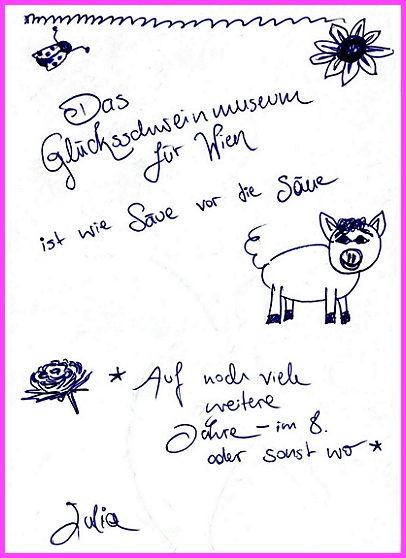 Das
Glücksschweinmuseum
für Wien
ist wie Säue vor die Säue
* Auf noch viele
weitere
Jahre – im 8.
oder sonst wo *
Julia